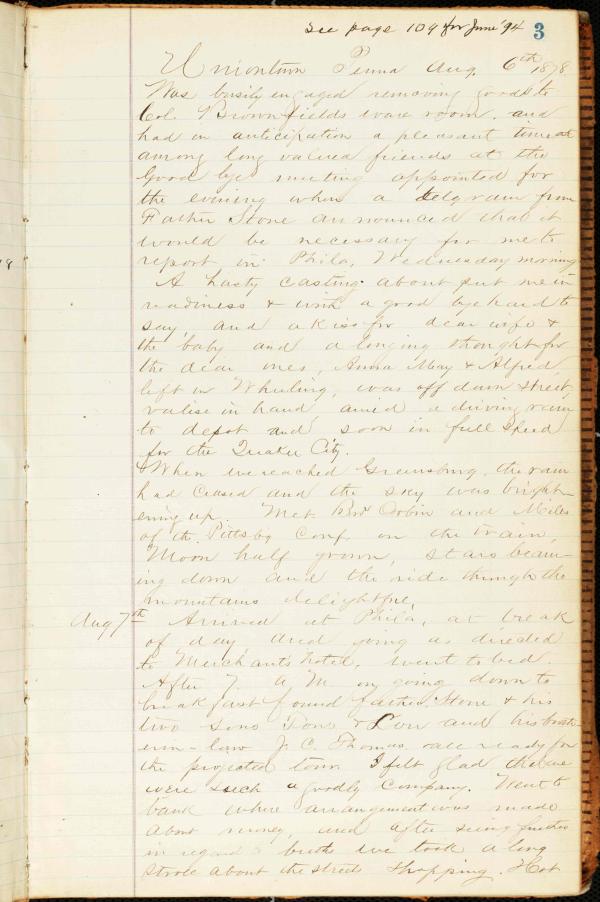 See page 109 for June '94 3
Uniontown Penna Aug. 6th 1878
Was busily engaged removing goods to
Col. Brownfields ware room. and
had in anticipation a pleasant time at
among long valued friends at the
Good bye meeting appointed for
the evening when a telgram from
Father Stone announced that it
would be necessary for me to
report in Phila, Wednesday morning
A hasty casting about put me in
readiness & with a good bye hard to
say, and a kiss for dear wife &
the baby and a longing thought for
the dear ones, Anna May & Alfred
left in Wheeling, was off down street,
valise in hand amid a driving rain
to depot and soon in full speed
for the Quaker City.
When we reached Greensburg, the rain
had ceased and the sky was bright-
ening up. Met Bros Dobin and Miles
of the Pittsbg Conf. on the train,
Moon half grown, stars beam-
ing down and the ride through the
mountains delightful,
Aug 7th Arrived at Phila, at break
of day and going as directed
to Merchants hotel, went to bed.
After 7. A M on going down to
breakfast found father Stone & his
two sons & Lou and his broth-
er in-law J. C. Thomas all ready for
the projected tour. I felt glad that we
were such a goodly company. Went to
bank where arrangement was made
about money, and after seeing further
in regard to berths we took a long
strole about the streets shopping. Hot